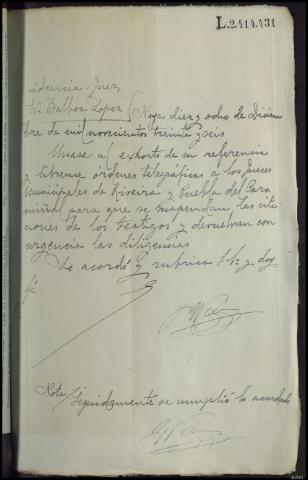 L.2414.431
videncia Juez
Sr. Balboa Lopez } Noya diez y ocho de Diciem
bre de mil novecientos treinta y seis
Unase al exhorto de su referencia
y librense ordenes telegráficas a los Jueces
Municipales de Riveira y Puebla del Cara
miñal para que se suspendan las cita
ciones de los testigos y devuelvan con
urgencia las diligencias
Lo acordó y rubrica S.Sª y doy
fé
Nota/ Seguidamente se cumplió lo acordado